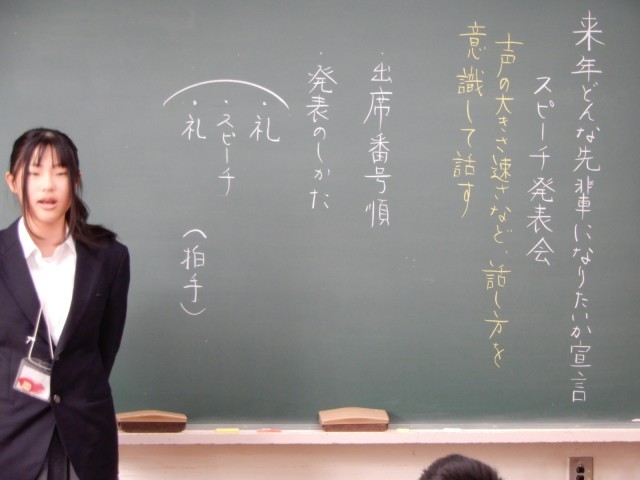 来年どんな先輩になりたいか宣言
スピーチ発表会
声の大きさ速さなど、話し方を
意識して話す
・出席番号順
・発表のしかた
・礼
・スピーチ
・礼
（拍手）